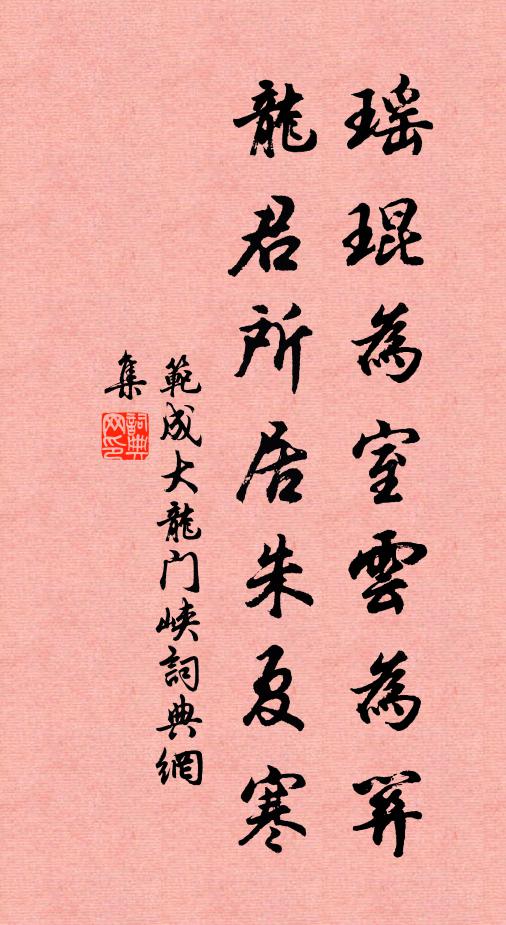 瑶琨為室雲為關
龍君所居朱夏寒
範成大龍门峡詞典網
集
詞典
网印